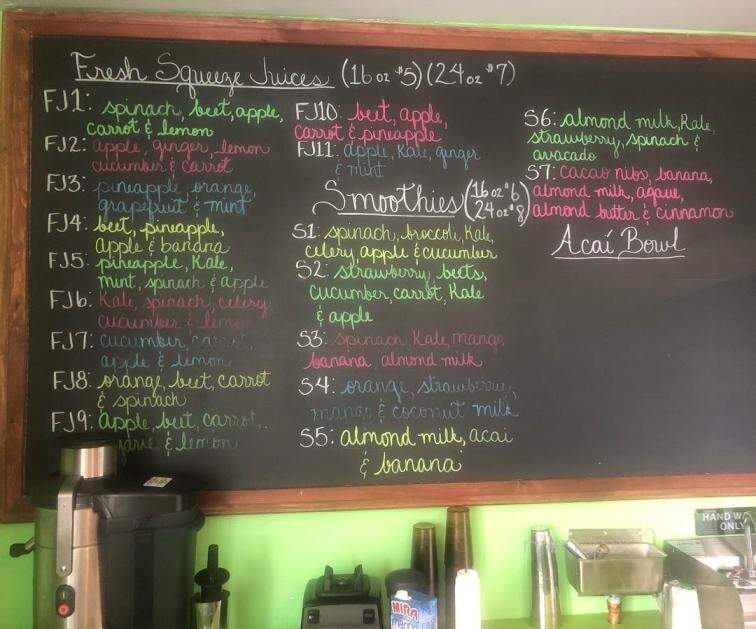 Fresh Squeeze Juices (16oz $5) (24oz $7)
FJ1: spinach, beet, apple,
carrot & lemon
FJ2: apple, ginger, lemon
cucumber & carrot
FJ3: pineapple, orange,
grapefruit & mint
FJ4: beet, pineapple,
apple & banana
FJ5: pineapple, Kale,
mint, spinach & apple
FJ6: Kale, spinach, celery
cucumber & lemon
FJ7: cucumber, carrot,
apple & lemon
FJ8: orange, beet, carrot
& spinach
FJ9: apple, beet, carrot,
& lemon
FJ10: beet, apple,
carrot & pineapple
FJ11: apple, Kale, ginger
& mint
Smoothies (16oz $6
24oz $8)
S1: spinach, broccoli, Kale,
celery, apple & cucumber
S2: strawberry, beets,
cucumber, carrot, Kale
& apple
S3: spinach Kale, mango,
banana, almond milk
S4: orange, strawberry,
mango & coconut milk
S5: almond milk, acai
& banana
S6: almond milk, Kale,
strawberry, spinach &
avacado
S7: cacao nibs, banana,
almond milk, agave,
almond butter & cinnamon
Acaí Bowl
HAND W
ONLY
MIRA